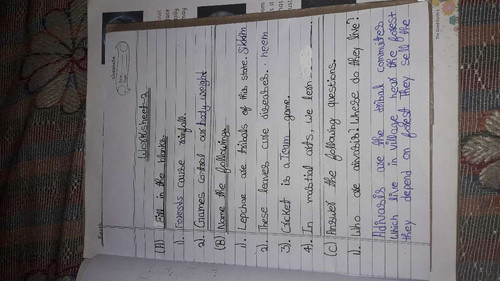 Worksheet-2
(A) Fill in the blanks
1). Forests cause rainfall.
2). Games control our body weight
(B) Name the followings.
1). Lepchas are tribals of this state. Sikkim
2). These leaves cure diseases. heem
3). Cricket is a Team game.
4). In mastial arts, we lern
(C) Answer the following questions.
1). Who are aivasis? Whese do they live?
Adivasis are the tribal commuites
which live in village near the forest
they depend on forest They sell the